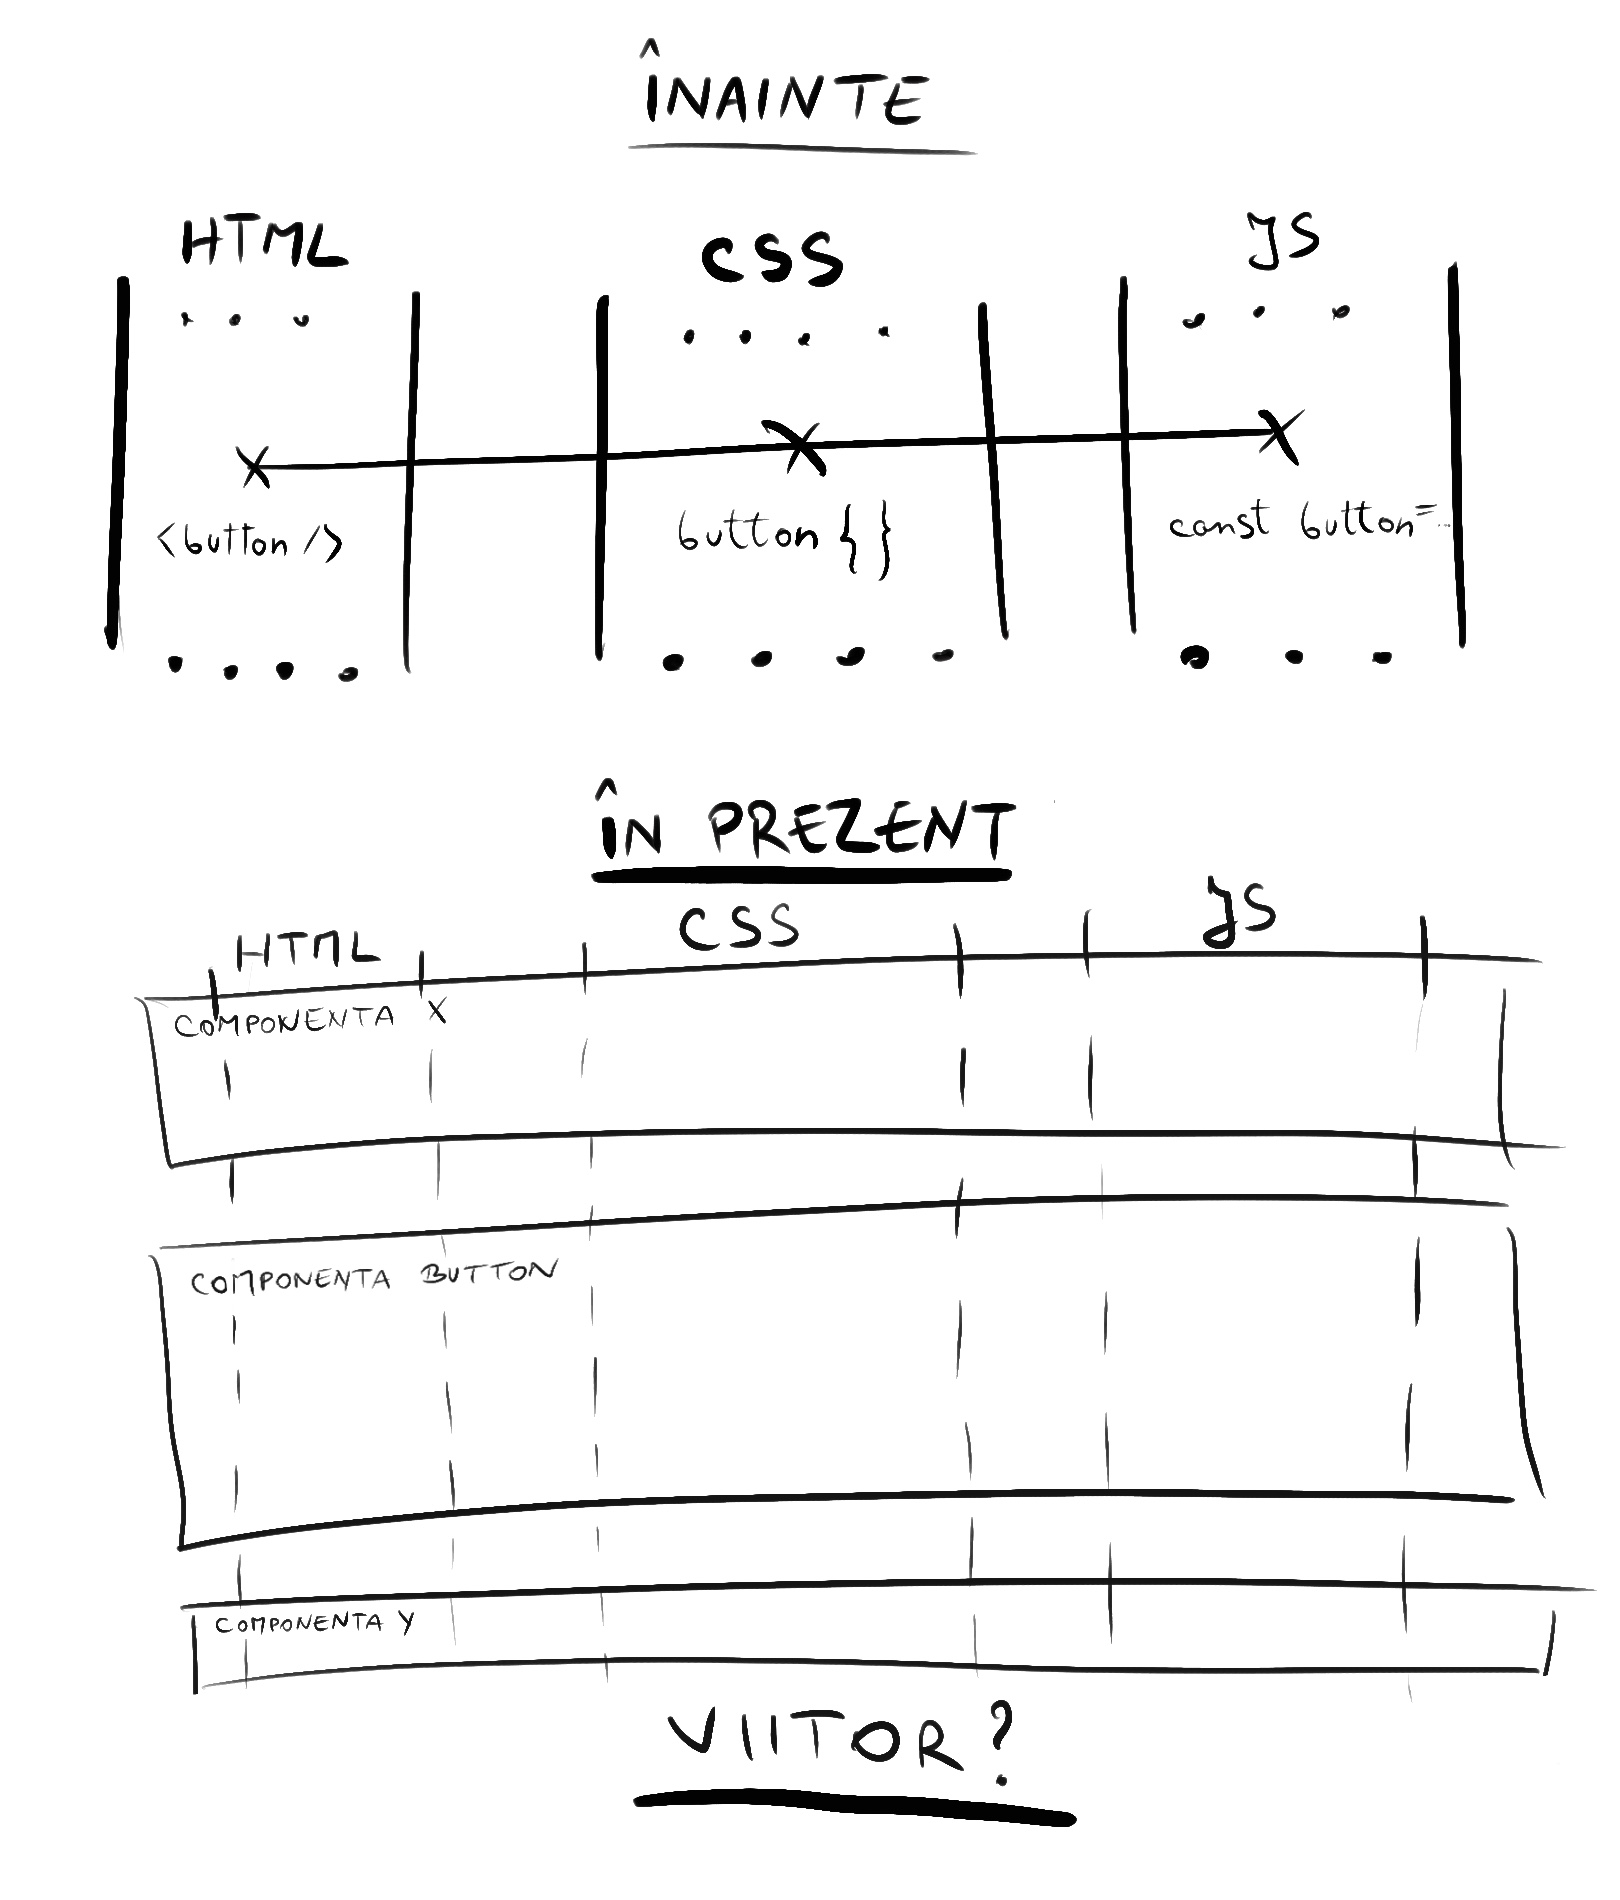 ÎNAINTE
HTML CSS JS
<button /> button { } const button=...
ÎN PREZENT
HTML CSS JS
COMPONENTA X
COMPONENTA BUTTON
COMPONENTA Y
VIITOR?